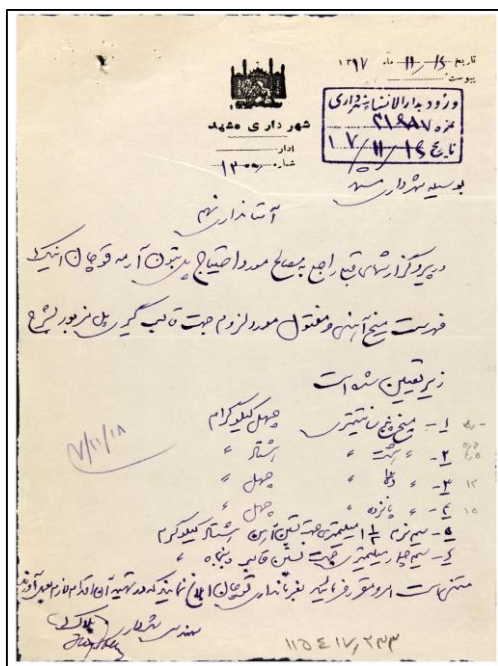 تاریخ ۱۵/۱۱ ماه ۱۳۱۷
پیوست
شهرداری مشهد
اداره
شماره ۱۳۰۰
ورود بدارالانشاء شهرداری
نمره ۲۱۹۸۷
تاریخ ۱۶/۱۱/۱۷
بوسیله شهرداری مشهد
استانداری نهم
در پیرو گزارشهای قبلی راجع به مصالح مورد احتیاج پل بتون آرمه قوچان اینک
فهرست میخ آهنی و مفتول مورد لزوم جهت قالب گیری پل مزبور بشرح
زیر تعیین شده است
۱- میخ پنج سانتیمتری چهل کیلوگرام
۲- " هشت " هشتاد "
۳- " ده " چهل "
۴- " پانزده " چهل "
۵- سیم نرم ۱ ۱/۲ میلیمتری جهت بستن آهن هشتاد کیلوگرم
۶- سیم چهار میلیمتری جهت بستن قالب پنجاه "
متمنی است امر و مقرر فرمائید بفرمانداری قوچان ابلاغ نمایند که در تهیه آن اقدام لازم بعمل آورند
مهندس شهرداری
۷/۱۱/۱۸
۱۱۵ ۴۱۷٫۲۳۳